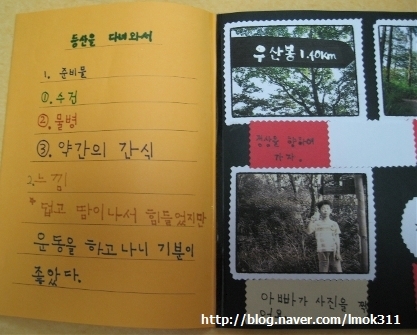 등산을 다녀와서
1. 준비물
①. 수건
②. 물병
③. 약간의 간식
2. 느낌
* 덥고 땀이나서 힘들었지만
운동을 하고나니 기분이
좋았다.
우산봉 1.10km
정상을 향하여
가자.
아빠가 사진을 찍
http://blog.naver.com/lmok311